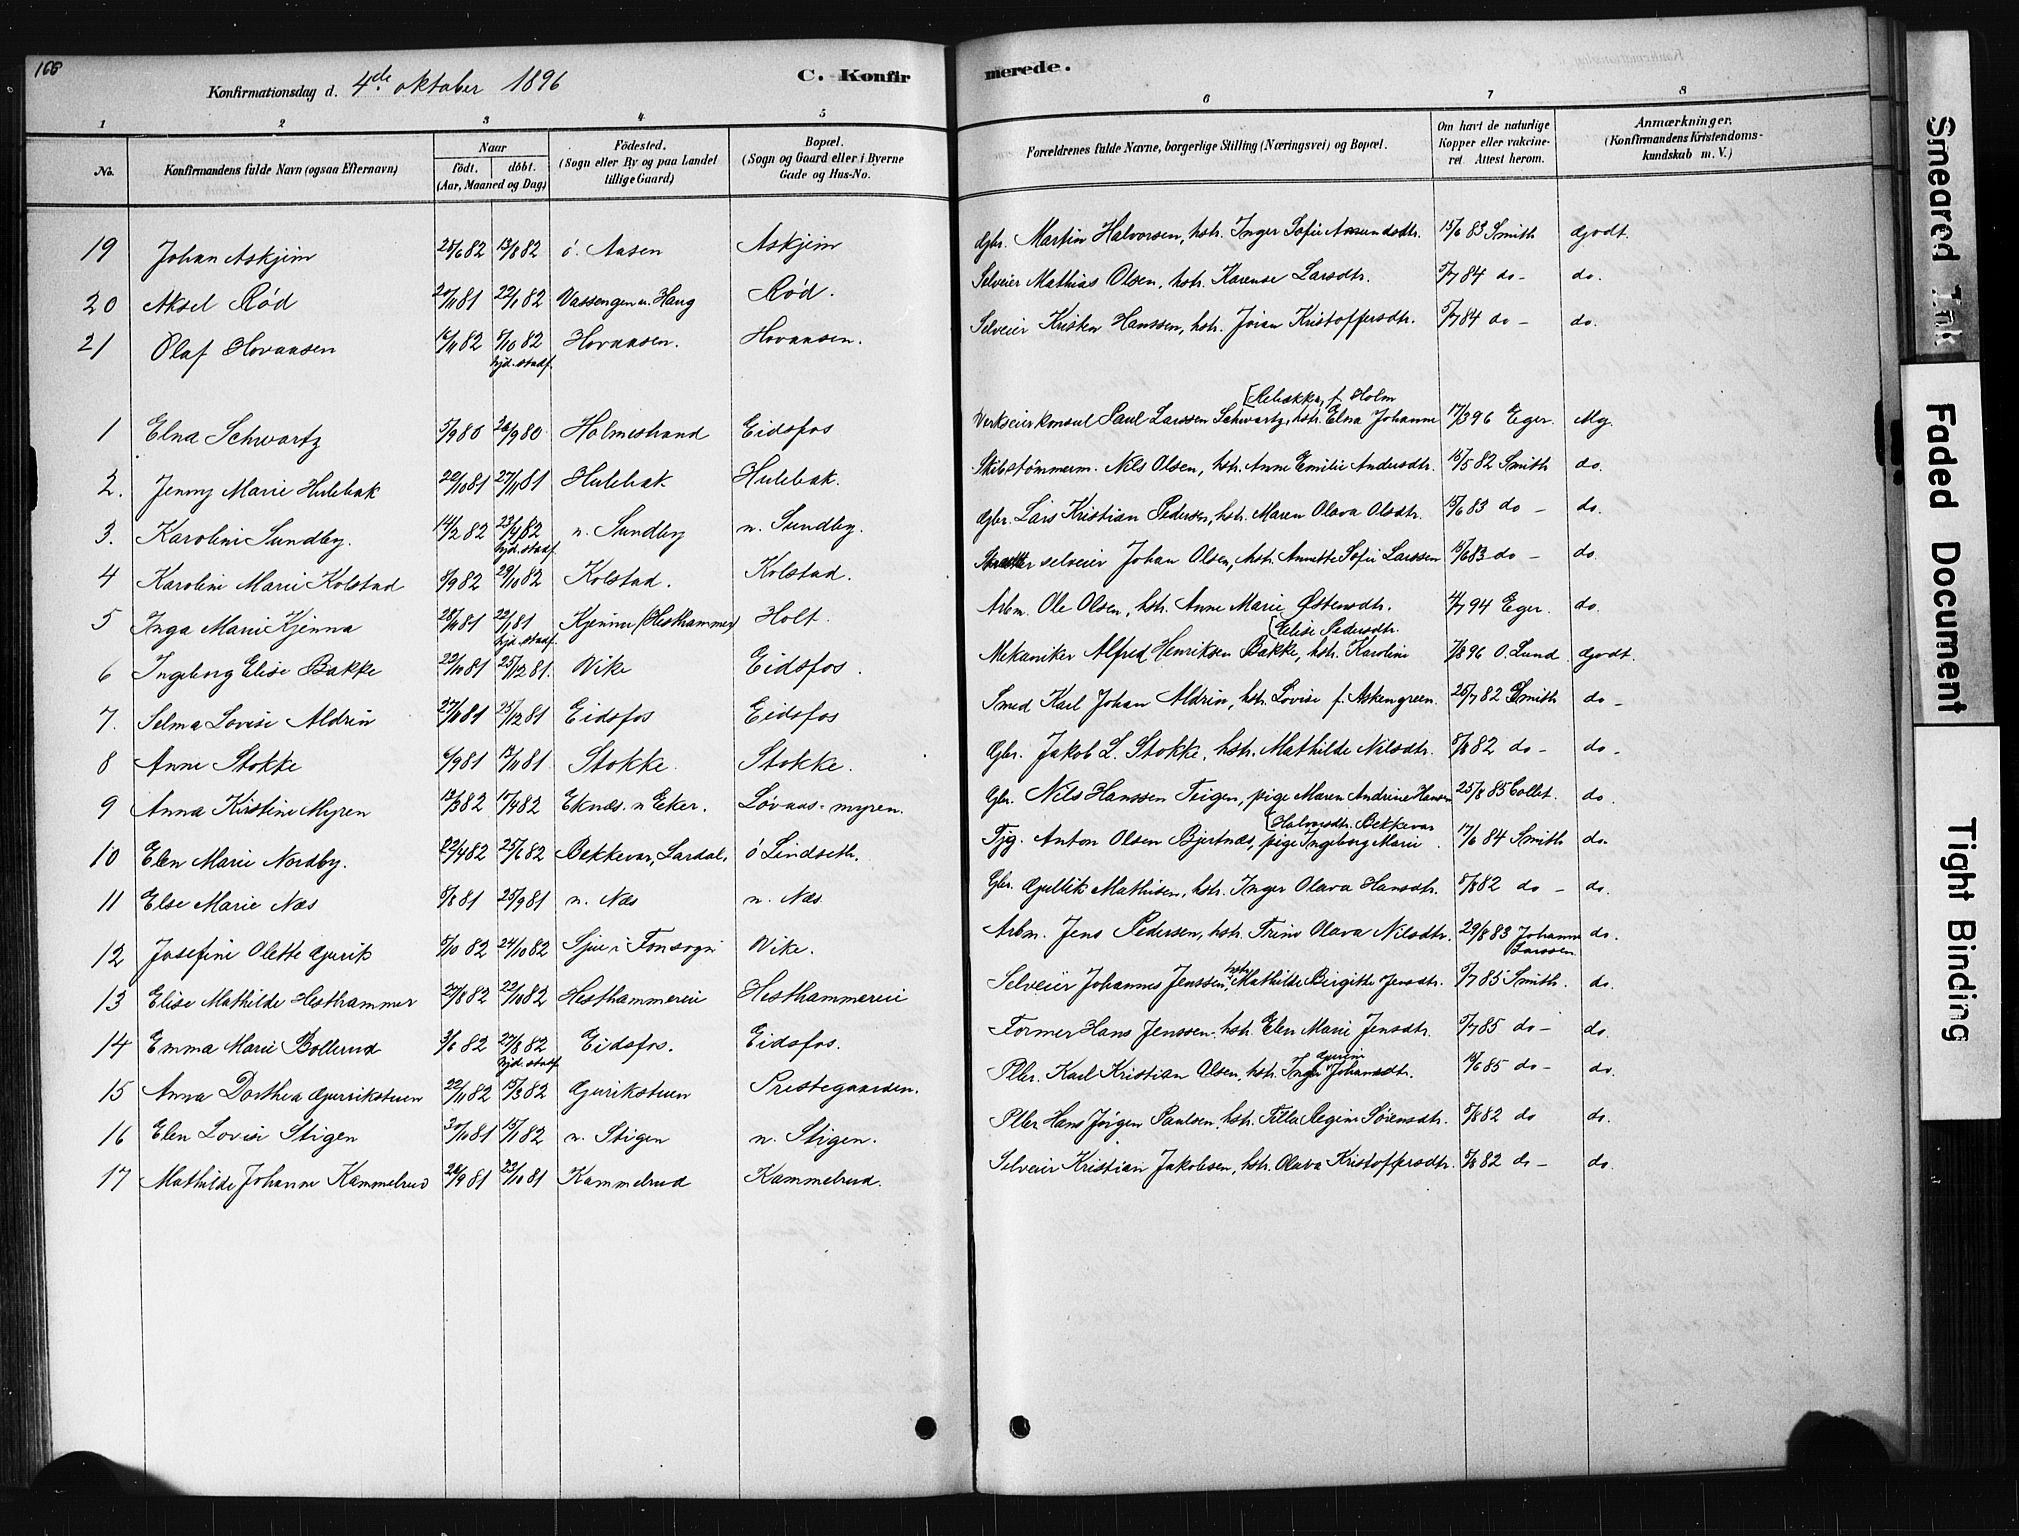 166
Konfirmationsdag d. 4de oktober 1896
C. Konfirmerede.
1 2 3 4 5 6 7 8
No. Konfirmandens fulde Navn (ogsaa Efternavn) Naar födt. döbt. (Aar, Maaned og Dag) Födested. (Sogn eller By og paa Landet tillige Gaard) Bopæl. (Sogn og Gaard eller i Byerne Gade og Hus-No. Forældrenes fulde Navne, borgerlige Stilling (Næringsvei) og Bopæl. Om havt de naturlige Kopper eller vakcineret. Attest herom. Anmærkninger. (Konfirmandens Kristendomskundskab m. V.)
19 Johan Askjem 25/6 82 13/8 82 ö. Aasen Askjem Gbr. Martin Halvorsen, hstr. Inger Sofie Amundsdtr. 15/6 83 Smith Godt.
20 Aksel Rød 81 22/1 82 Vassengen u. Haug Rød. Selveier Mathias Olsen, hstr. Karense Larsdtr. 5/7 84 do - do.
21 Olaf Hovaasen 82 8/10 82 hjd. stadf. Hovaasen. Hovaasen. Selveier Kristen Hanssen, hstr. Jöran Kristoffersdtr. 5/7 84 do - do.
1 Elna Schwartz 5/9 80 26/9 80 Holmestrand Eidsfos Verkseier konsul Paul Larssen Schwartz, hstr. Elna Johanne [Rebekka, f. Holm 17/3 96 Eger. Mg.
2. Jenny Marie Hulebak 22/10 81 27/11 81 Hulebak Hulebak. Skibstømmerm. Nils Olsen, hstr. Anne Emilie Andersdtr. 15/5 82 Smith do.
3. Karoline Sundby. 14/2 82 23/4 82 hjd. stadf. n. Sundby n. Sundby. Gbr. Lars Kristian Pedersen, hstr. Maren Olava Olsdtr. 15/6 83 do - do.
4 Karoline Marie Kolstad 8/9 82 29/10 82 Kolstad. Kolstad. selveier Johan Olsen, hstr. Annette Sofie Larssen 15/6 83 do - do.
5 Inga Marie Kjenna 81 81 hjd. stadf. Kjenna (Hesthammer) Holt. Arbm. Ole Olsen, hstr. Anne Marie Østensdtr. 4/7 94 Eger. do.
6 Ingeborg Elise Bakke 22/10 81 25/12 81. Vike Eidsfos. Mekaniker Alfred Henriksen Bakke, hstr. Karoline [Elise Pedersdtr. 7/8 96 O. Lund Godt.
7. Selma Lovise Aldrin 81 25/12 81 Eidsfos Eidsfos Smed Karl Johan Aldrin, hstr. Lovise f. Askengreen. 25/7 82 Smith do -
8 Anne Stokke 6/9 81 13/11 81. Stokke. Stokke. Gbr. Jakob L. Stokke, hstr. Mathilde Nilsdtr. 8/8 82 do - do -
9 Anna Kirstine Myren 12/3 82 17/4 82 Eknæs. n Eker. Løvaas-myren. Gbr. Nils Hanssen Teigen, pige Maren Andrine Hansen 25/8 85 Collet. do.
10 Elen Marie Nordby. 22/4 82 25/6 82 Bekkevar, Lardal. ö Lindseth. Tjg. Anton Olsen Bjertnæs, pige Ingeborg Marie [Halvorsdtr. Bekkevar 17/6 84 Smith do.
11 Else Marie Næs 8/8 81 25/9 81 n. Næs n. Næs. Gbr. Gullik Mathisen, hstr. Inger Olava Hansdtr. 8/8 82 do - do.
12 Josefine Olette Gurik 8/10 82 24/10 82 i Fonsogn Vike. Arbm. Jens Pedersen, hstr. Trine Olava Nilsdtr. 29/8 83 Johanna Larssen do.
13 Elise Mathilde Hesthammer 27/8 82 22/10 82 Hesthammereie Hesthammereie Selveier Johannes Jenssen, hstr. Mathilde Birgitte Jensdtr. 5/7 85 Smith. do.
14 Emma Marie Bollerud 3/6 82 27/8 82 hjd. stadf. Eidsfos. Eidsfos. Former Hans Jenssen. hstr. Elen Marie Jensdtr. 5/7 85 do - do.
15 Anna Dorthea Gurikstuen 82 82 Gurikstuen Prestegaarden. Pller. Karl Kristian Olsen, hstr. Inger Gurine Johansdtr. 85 do - do.
16 Elen Lovise Stigen 30/10 81 15/1 82 n. Stigen n. Stigen. Pller Hans Jörgen Paulsen, hstr. Tilla Regine Sörensdtr. 8/8 82 do do.
17 Mathilde Johanne Kammelrud 81 23/10 81 Kammelrud Kammelrud. Selveier Kristian Jakobsen, hstr. Olava Kristoffersdtr. 8/8 82 do - do.
Smeared Ink
Faded Document
Tight Binding